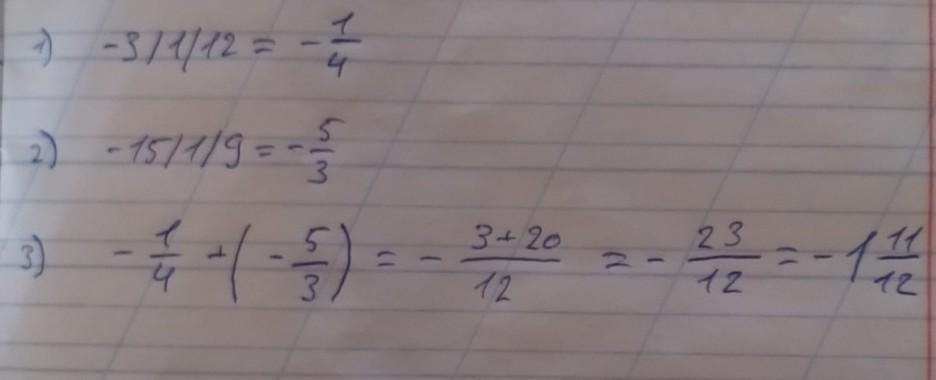 1) -3/1/12 = -1/4
2) -15/1/9 = -5/3
3) -1/4 + (-5/3) = -3+20/12 = -23/12 = -1 11/12